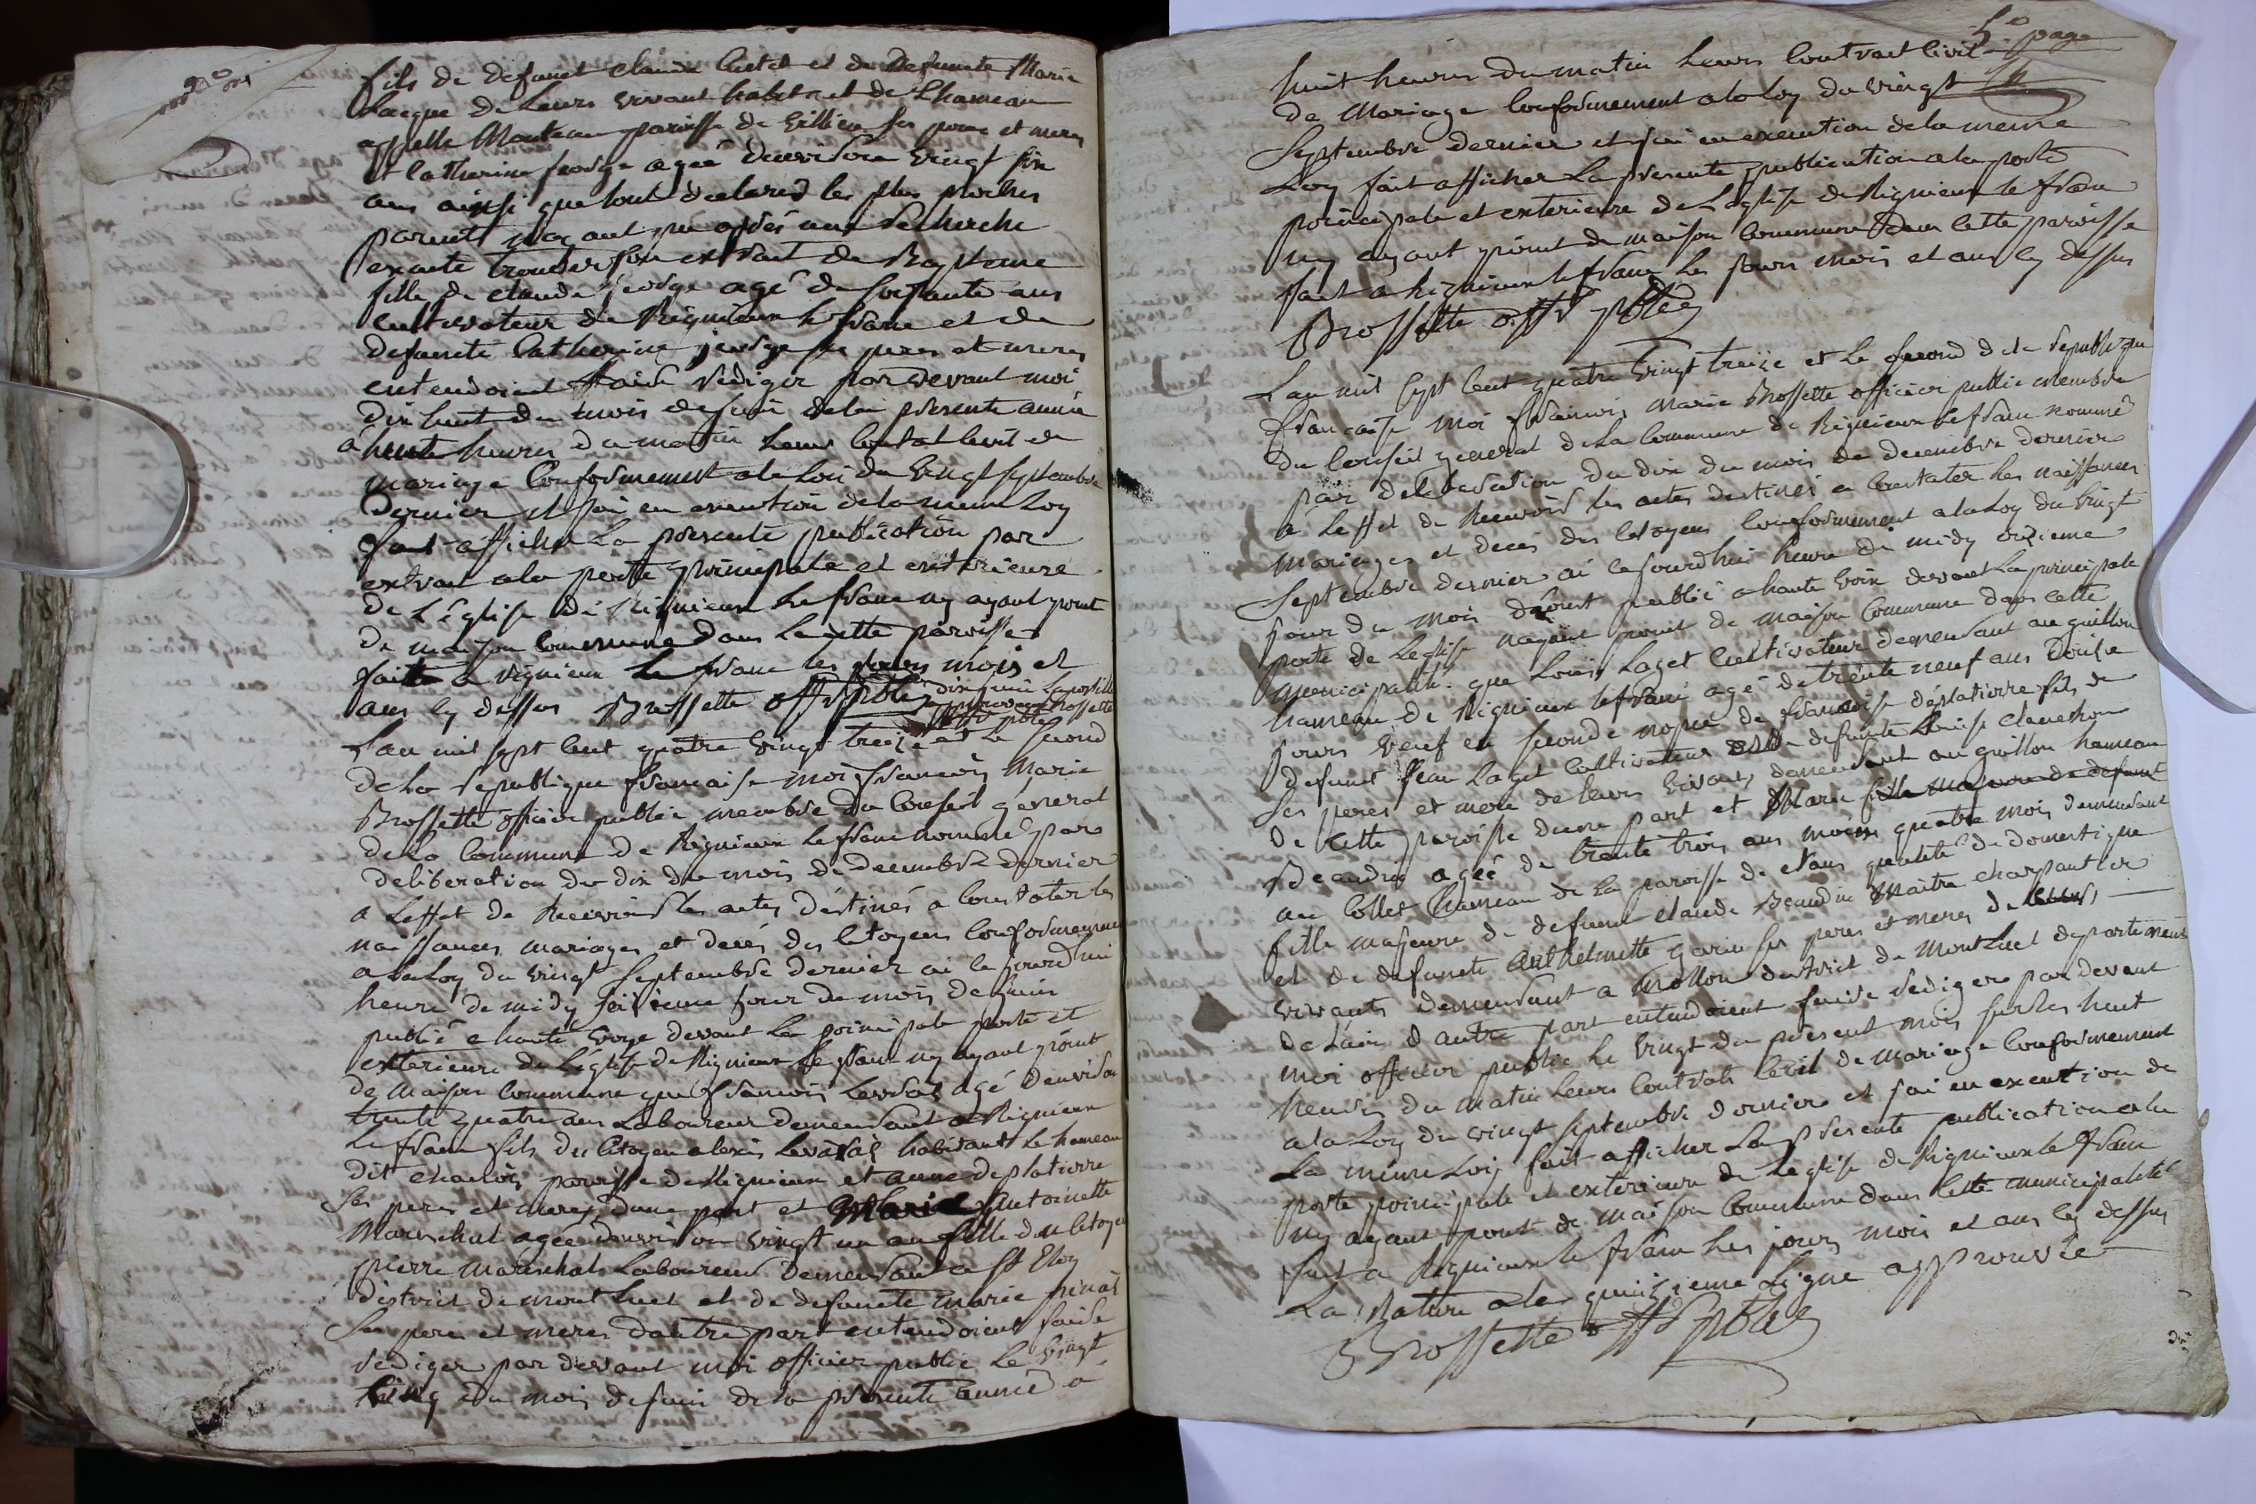 fils de defunct claude Cutet et de defuncte Marie
Jacque de Leurs vivant habitant de Lhameau
appelle Monteau paroisse de villieu ses peres et meres
et Catherine jeorge ageé denviron vingt six
ans ainsi que lont declarés les plus proches
parents nayant pu apres une recherche
exacte trouver son extrait de Bapteme
fille de claude jeorge agé de soixante ans
cultivateur de Rignieux le franc et de
defuncte Catherine jeorge ses peres et meres
entendoient faire rediger par devant moi
dix huit du mois de juin de la presente année
a huit heures du matin Leur contrat civil de
mariage Conformement a la Loi du vingt septembre
dernier et jai en execution de la meme Loy
fait afficher La presente publication par
extrait a la porte principale et exterieure
de L'Eglise de Rignieux Le franc ny ayant point
de maison commune dans La cette paroisse
faitte a rignieux Le franc les jours mois et
ans cy dessus Brossette offr pblc
L'an mil sept cent quatre vingt treize et Le second
de La republique francaise moi francois Marie
Brossette officier public membre du Conseil general
de La Commune de Rignieux Le franc nommé par
deliberation du dix du mois de decembre dernier
a Leffet de Recevoir les actes destinés a constater les
naissances mariages et decés des citoyens conformement
a la Loy du vingt septembre dernier ai ce jourd'hui
heure de midy seizieme jour du mois de juin
publié a haute voye devant La principale porte et
exterieure de L'église de Rignieux Le franc ny ayant point
de maison commune que francois Levrat agé denviron
trente quatre ans Laboureur demeurant a Rignieux
Le franc fils du Citoyen alexis Levrat habitant Le hameau
dit chalois paroisse de Rignieux et anne deplatierre
ses peres et meres dune part et Marie Antoinette
Mareschal ageé denviron vingt un an fille du Citoyen
pierre mareschal Laboureur demeurant a St Eloy
district de montluel et de defuncte marie
ses peres et meres dautre part entendoient faire
rediger par devant moi officier public Le vingt
cinq du mois de juin de la presente année a
5e page
huit heures du matin Leurs Contrat Civil
de Mariage Conformement a la Loy du vingt
Septembre dernier et jai en execution de la meme
Loy fait afficher La presente publication a la porte
principale et exterieure de L'eglise de Rignieux le franc
ny ayant point de maison Commune dans Cette paroisse
fait a Rignieux le franc Les jours mois et ans cy dessus
Brossette offr pblc
L'an mil sept Cent quatre vingt treize et Le second de la republique
francaise moi francois Marie Brossette officier public membre
du Conseil general de La Commune de Rignieux le franc nommé
par deliberation du dix du mois de decembre dernier
a Leffet de Recevoir les actes destinés a Constater les naissances
mariages et decés des Citoyens Conformement a la Loy du vingt
Septembre dernier ai ce jourdhui heure de midy onzieme
jour du mois d'aoust publié a haute voix devant La principale
porte de Leglise nayant point de maison Commune dans cette
municipalité que Louis Laget Cultivateur demeurant au guillon
hameau de Rignieux le franc agé de trente neuf ans douse
jours veuf en seconde nopce de francoise déplatierre fils de
defunct jean Laget Cultivateur et de defuncte Louise
ses peres et mere de leurs vivant demeurant au guillon hameau
de Cette paroisse dune part et Marie fille majeure de defunct
Beaudin ageé de trente trois ans moins quatre mois demeurant
au Collet hameau de La paroisse de qualité de domestique
fille majeure de defunct claude Beaudin maitre charpantier
et de defuncte Anthelmette Garin ses peres et meres de Leurs
vivants demeurant a Mollon district de montluel departement
de Lain d'autre part entendoient faire rediger par devant
moi officier public Le vingt du present mois sur les huit
heures du matin Leurs Contrat Civil de mariage Conformement
a la Loy du vingt septembre dernier et jai en execution de
La meme Loy fait afficher La presente publication a la
porte principale et exterieure de Leglise de Rignieux le franc
ny ayant point de maison Commune dans Cette municipalité
fait a Rignieux le franc Les jours mois et ans cy dessus
La Rature a La quinzieme Ligne approuvée
Brossette offr pblc